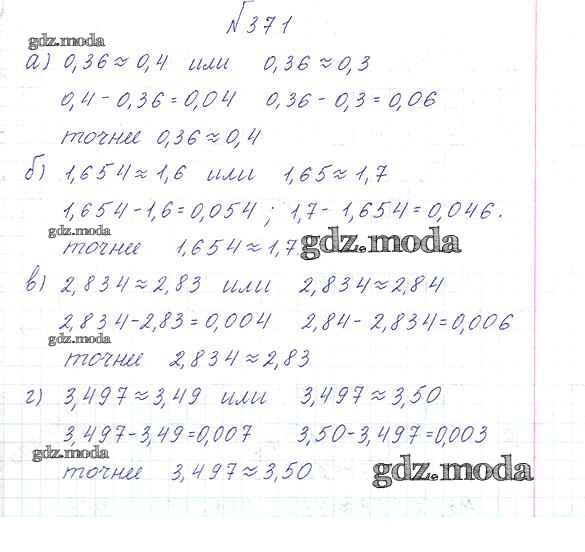 №371
gdz.moda
а) 0,36≈0,4 или 0,36≈0,3
0,4-0,36=0,04 0,36-0,3=0,06
точнее 0,36≈0,4
б) 1,654≈1,6 или 1,65≈1,7
1,654-1,6=0,054; 1,7-1,654=0,046.
gdz.moda
точнее 1,654≈1,7 gdz.moda
в) 2,834≈2,83 или 2,834≈2,84
2,834-2,83=0,004 2,84-2,834=0,006
gdz.moda
точнее 2,834≈2,83
г) 3,497≈3,49 или 3,497≈3,50
3,497-3,49=0,007 3,50-3,497=0,003
gdz.moda
точнее 3,497≈3,50 gdz.moda